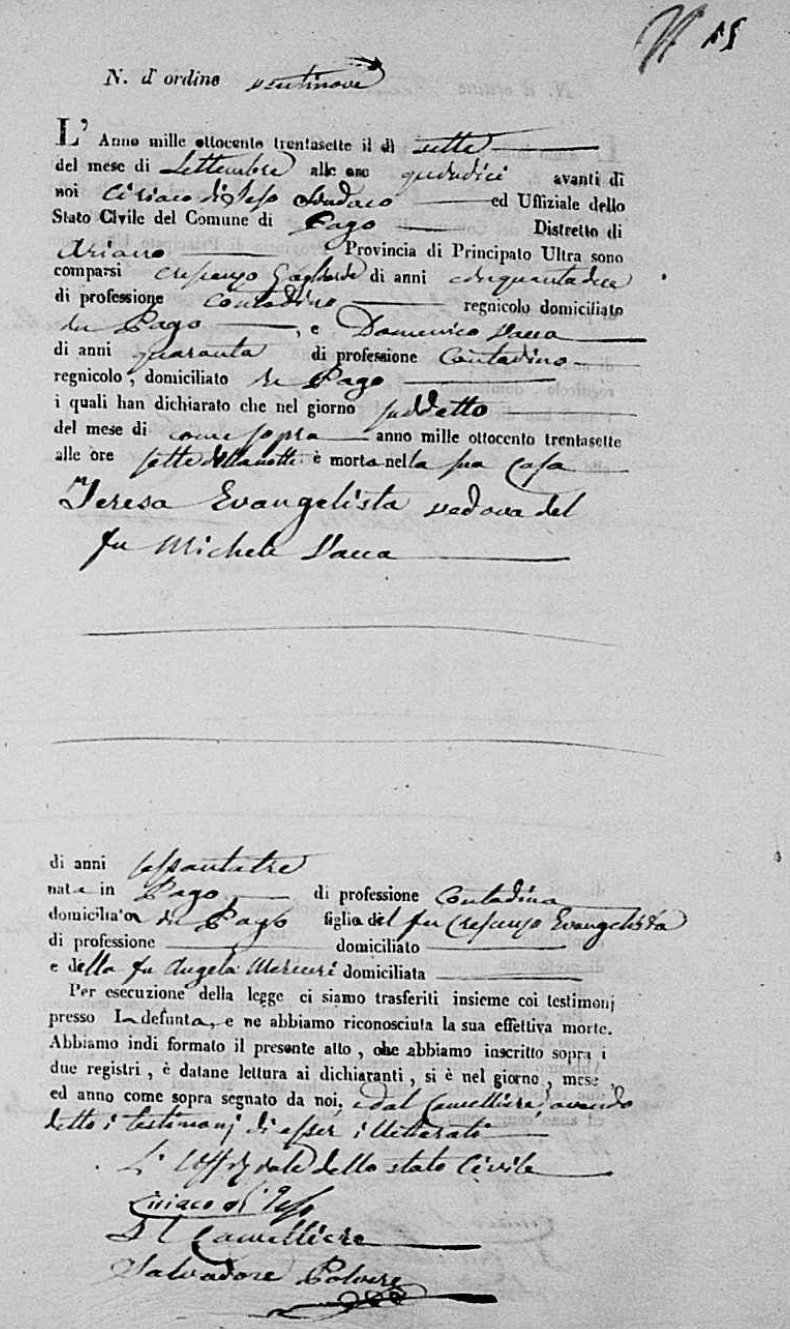 N. 15
N. d' ordine ventinove
L' Anno mille ottocento trentasette il dì sette
del mese di Settembre alle ore quindici avanti di
noi Ciriaco di Peso Sindaco ed Uffiziale dello
Stato Civile del Comune di Pago Distretto di
Ariano Provincia di Principato Ultra sono
comparsi Crescenzo Gagliarde di anni cinquantadue
di professione contadino regnicolo domiciliato
in Pago , e Domenico Vacca
di anni quaranta di professione Contadino
regnicolo , domiciliato in Pago
i quali han dichiarato che nel giorno suddetto
del mese di come sopra anno mille ottocento trentasette
alle ore sette della notte è morta nella sua casa
Teresa Evangelista vedova del
fu Michele Vacca
di anni sessantatre
nata in Pago di professione Contadina
domiciliata in Pago figlia del fu Crescenzo Evangelista
di professione domiciliato
e della fu Angela Mercuri domiciliata
Per esecuzione della legge ci siamo trasferiti insieme coi testimonj
presso la defunta, e ne abbiamo riconosciuta la sua effettiva morte.
Abbiamo indi formato il presente atto , che abbiamo inscritto sopra i
due registri , è datane lettura ai dichiaranti , si è nel giorno , mese ,
ed anno come sopra segnato da noi, e dal Cancelliere, avendo
detto i testimonj di esser illetterati
L' Uffiziale dello stato Civile
Ciriaco di Peso
Il Cancelliere
Salvadore Polvere